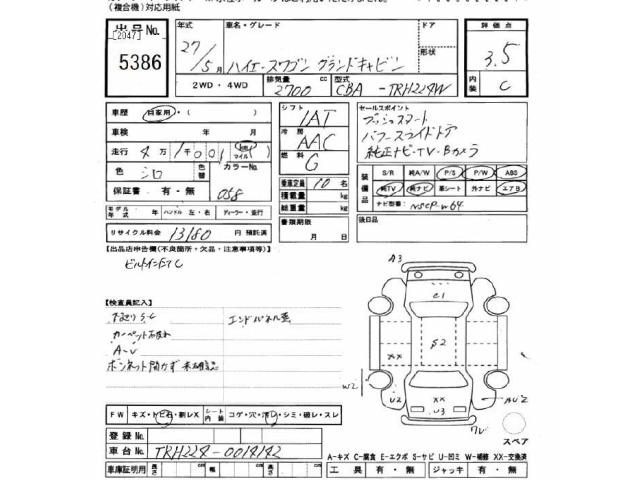 (複合機)対応用紙
出品号No. 年式 車名・グレード ドア 評価点
[2047]
5386 27/5月 ハイエースワゴン グランドキャビン 形状 3.5
2WD・4WD 排気量 cc 型式 内装
2700 CBA-TRH224W C
車歴 自家用・( ) シフト セールスポイント
1AT プッシュスタート
車検 年 月 冷房 パワースライドドア
AAC 純正ナビ・TV・Bカメラ
走行 4万1千001 マイル 燃料
G
色 シロ 色替 カラーNo. 058 乗車定員 10名 装備品 S/R 純A/W P/S P/W ABS
積載量 kg 純TV 純ナビ 革シート 外ナビ エアB
保証書 有・無 総重量 kg ナビ型番 NSCP-W64
モデル年式 年 ハンドル 左・右 ディーラー・並行 書類期限 後日品
リサイクル料金 13180 円 預託済 月 日
【出品店申告欄(不良箇所・欠品・注意事項等)】
ビルトインETC
A3
【検査員記入】 C1
下廻りS、C エンドパネル歪
カーペット S2
A-U XX
ボンネット開かず 未確認 W2 U2 XX AU2
U3
FW キズ・トビ石・割レX シート内装 コゲ・穴・汚レ・シミ・破レ・スレ
登録No. スペア
車台No. TRH224-0014142 A-キズ C-腐食 E-エクボ S-サビ U-凹ミ W-補修 XX-交換済
車庫証明用 長さ cm 幅 cm 高さ cm 工具 有・無 ジャッキ 有・無